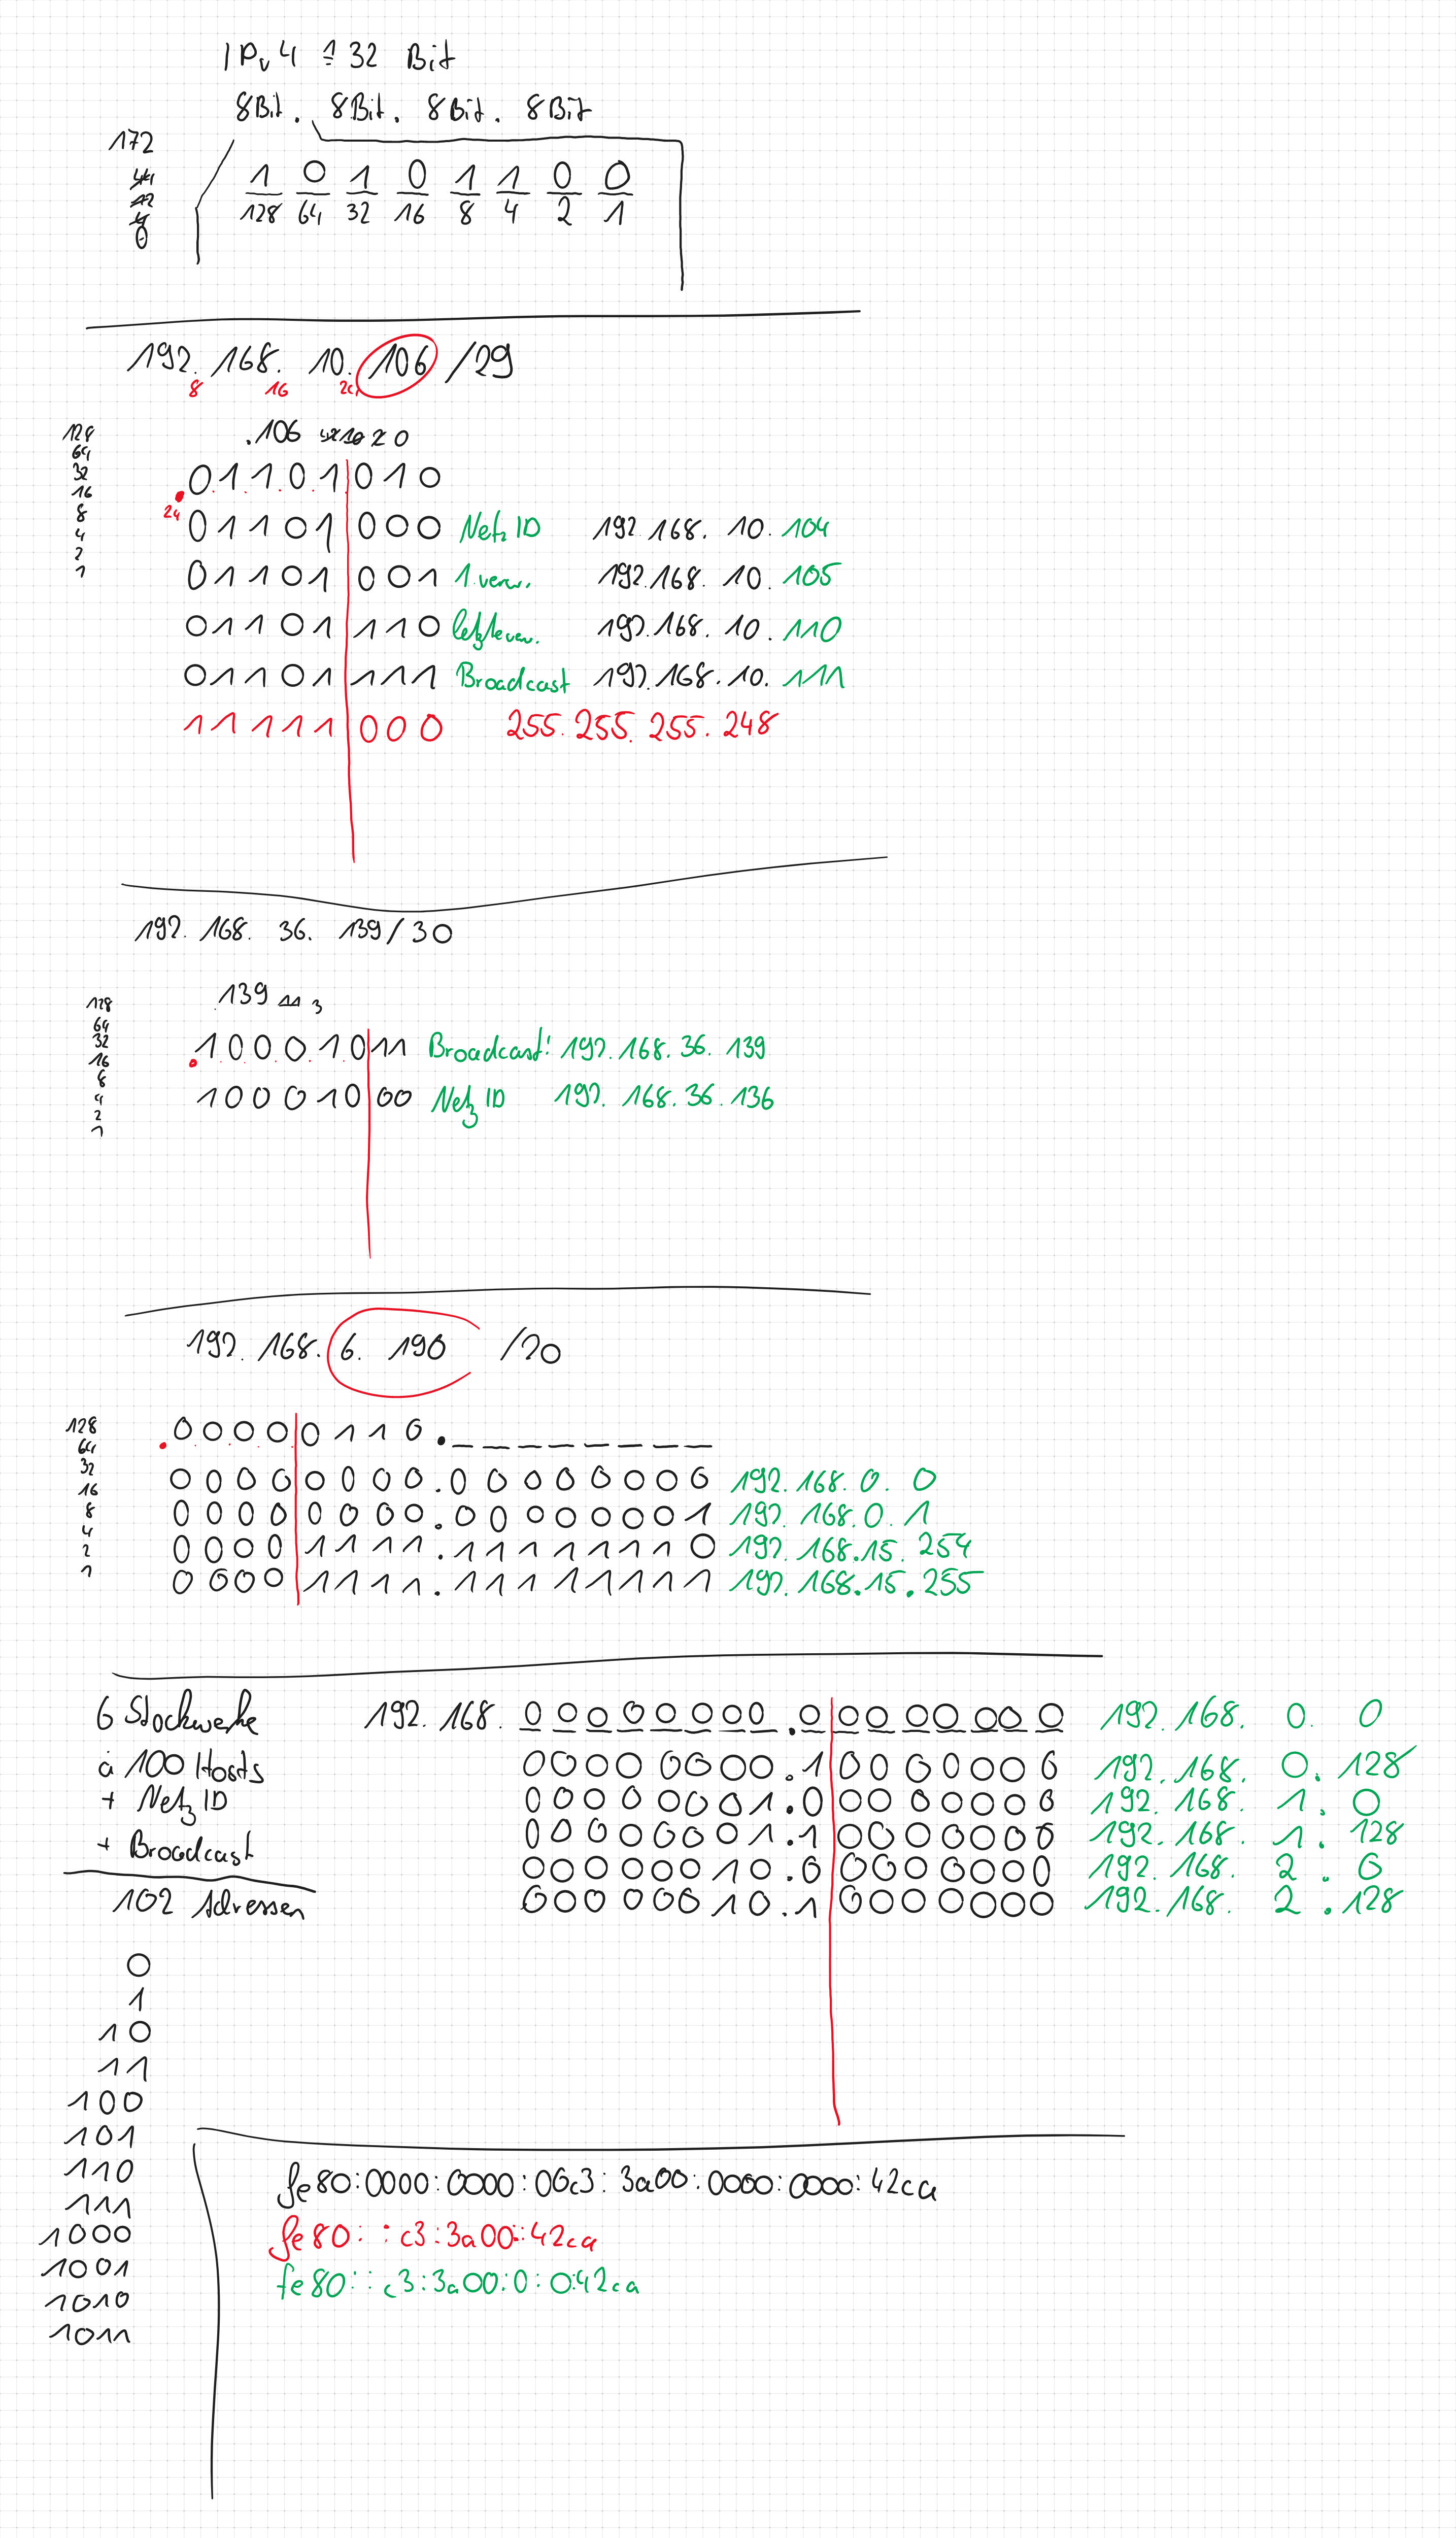 IPv4 ≙ 32 Bit
8Bit. 8Bit. 8Bit. 8Bit
172
44
12
4
0
1 0 1 0 1 1 0 0
128 64 32 16 8 4 2 1
192. 168. 10. 106 /29
8 16 24
.106 42 10 2 0
128
64
32
16
8
4
2
1
.01101010
24
01101000 Netz ID 192.168.10.104
01101001 1. verw. 192.168.10.105
01101110 letzte verw. 192.168.10.110
01101111 Broadcast 192.168.10.111
11111000 255.255.255.248
192. 168. 36. 139/30
.139 11 3
128
64
32
16
8
4
2
1
.10001011 Broadcast! 192.168.36.139
10001000 Netz ID 192.168.36.136
192. 168. 6. 190 /20
128
64
32
16
8
4
2
1
.00000110.________
00000000.00000000 192.168.0.0
00000000.00000001 192.168.0.1
00001111.11111110 192.168.15.254
00001111.11111111 192.168.15.255
6 Stockwerke 192.168. 00000000.00000000 192.168. 0. 0
à 100 Hosts 00000000.10000000 192.168. 0. 128
+ Netz ID 00000001.00000000 192.168. 1. 0
+ Broadcast 00000001.10000000 192.168. 1. 128
00000010.00000000 192.168. 2. 0
102 Adressen 00000010.10000000 192.168. 2. 128
0
1
10
11
100
101
110
111
1000
1001
1010
1011
fe80:0000:0000:00c3:3a00:0000:0000:42ca
fe80::c3:3a00::42ca
fe80::c3:3a00:0:0:42ca